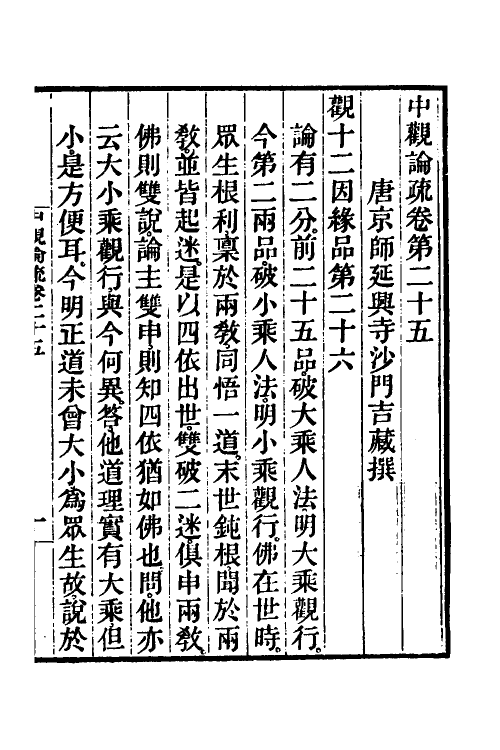 中觀論疏卷第二十五
唐京師延興寺沙門吉藏撰
觀十二因緣品第二十六
論有二分。前二十五品。破大乘人法明大乘觀行。
今第二兩品。破小乘人法。明小乘觀行。佛在世時。
眾生根利稟於兩教。同悟一道。末世鈍根。聞於兩
教。並皆起迷。是以四依出世。雙破二迷。俱申兩教。
佛則雙說。論主雙申。則知四依猶如佛也。問。他亦
云大小乘觀行。與今何異。答。他道理實有大乘。但
小是方便耳。今明正道未曾大小。為眾生故。說於
中觀論疏卷二十五
一